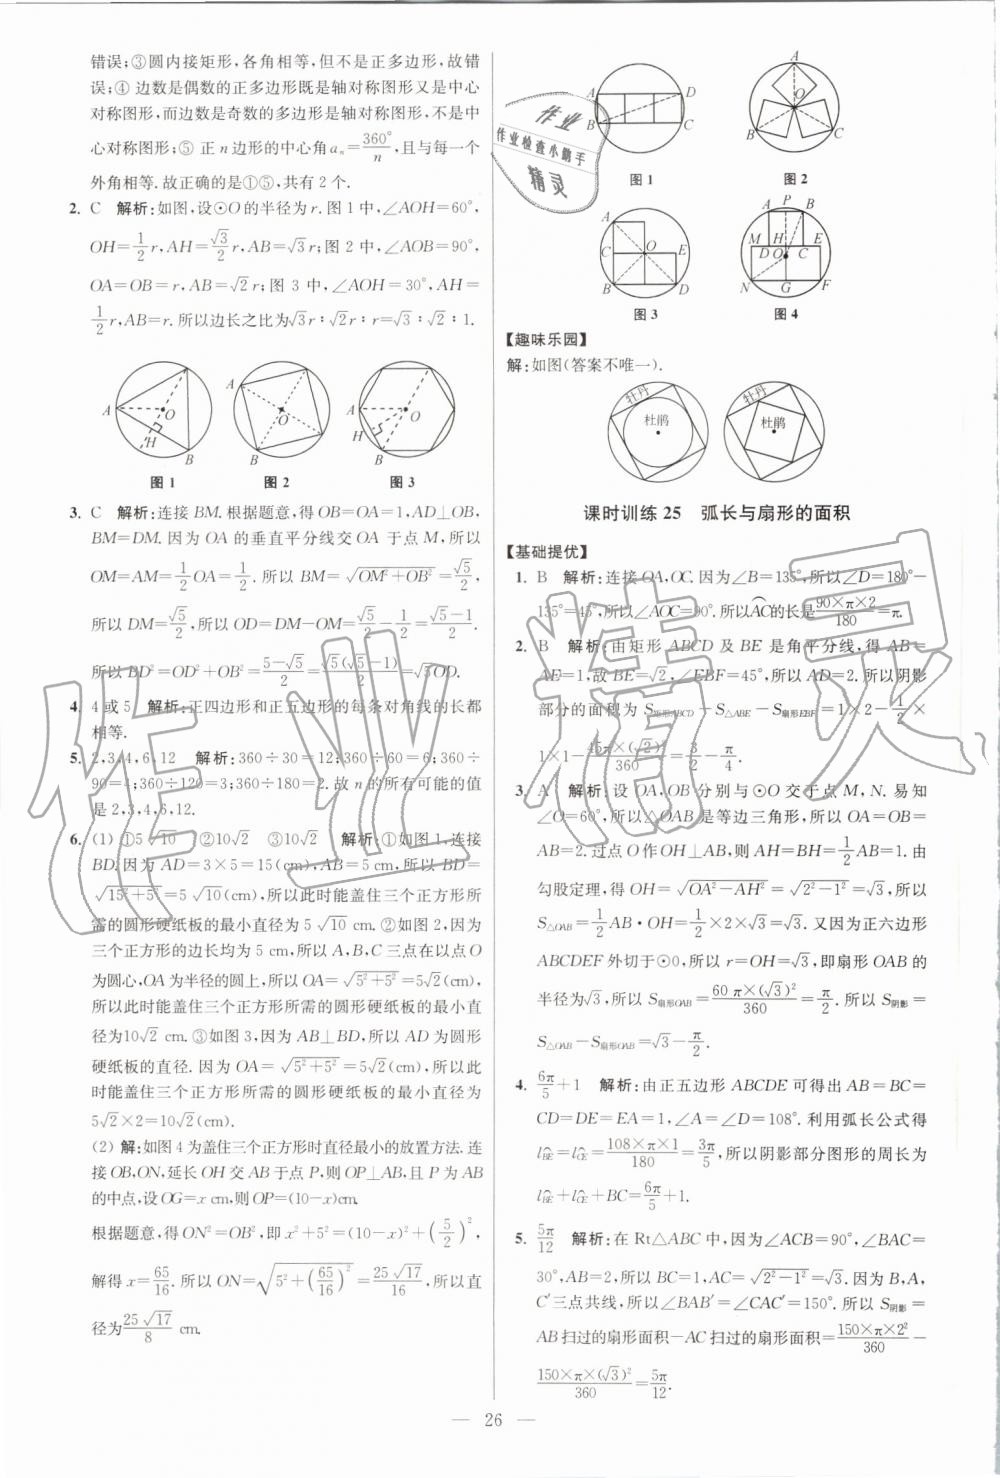 错误;③圆内接矩形,各角相等,但不是正多边形,故错
误;④ 边数是偶数的正多边形既是轴对称图形又是中心
对称图形,而边数是奇数的多边形是轴对称图形,不是中
心对称图形;⑤ 正n边形的中心角aₙ=360°/n,且与每一个
外角相等.故正确的是①⑤,共有2个.
2. C 解析:如图,设⊙O的半径为r.图1中,∠AOH=60°,
OH=1/2 r,AH=√3/2 r,AB=√3r;图2中,∠AOB=90°,
OA=OB=r,AB=√2r;图3中,∠AOH=30°,AH=
1/2 r,AB=r.所以边长之比为√3r∶√2r∶r=√3∶√2∶1.
A O H B
A O B
A O H B
图1 图2 图3
3. C 解析:连接BM.根据题意,得OB=OA=1,AD⊥OB,
BM=DM.因为OA的垂直平分线交OA于点M,所以
OM=AM=1/2 OA=1/2.所以BM=√(OM²+OB²)=√5/2,
所以DM=√5/2,所以OD=DM-OM=√5/2-1/2=(√5-1)/2.
所以BD²=OD²+OB²=(5-√5)/2=√5(√5-1)/2=√5OD.
4. 4或5 解析:正四边形和正五边形的每条对角线的长都
相等.
5. 2,3,4,6,12 解析:360÷30=12;360÷60=6;360÷
90=4;360÷120=3;360÷180=2.故n的所有可能的值
是2,3,4,6,12.
6. (1) ①5√10 ②10√2 ③10√2 解析:①如图1,连接
BD.因为AD=3×5=15(cm),AB=5cm,所以BD=
√(15²+5²)=5√10(cm),所以此时能盖住三个正方形所
需的圆形硬纸板的最小直径为5√10 cm.②如图2,因为
三个正方形的边长均为5 cm,所以A,B,C三点在以点O
为圆心,OA为半径的圆上,所以OA=√(5²+5²)=5√2(cm),
所以此时能盖住三个正方形所需的圆形硬纸板的最小直
径为10√2 cm.③如图3,因为AB⊥BD,所以AD为圆形
硬纸板的直径.因为OA=√(5²+5²)=5√2(cm),所以此
时能盖住三个正方形所需的圆形硬纸板的最小直径为
5√2×2=10√2(cm).
(2) 解:如图4为盖住三个正方形时直径最小的放置方法.连
接OB,ON,延长OH交AB于点P,则OP⊥AB,且P为AB
的中点,设OG=x cm,则OP=(10-x)cm.
根据题意,得ON²=OB²,即x²+5²=(10-x)²+(5/2)²,
解得x=65/16.所以ON=√(5²+(65/16)²)=25√17/16,所以直
径为25√17/8 cm.
A D B C
图1
A O B C
图2
A C O E B D
图3
A P B M H E D O C N G F
图4
作业
作业检查小助手
精灵
【趣味乐园】
解:如图(答案不唯一).
牡丹 杜鹃
牡丹 杜鹃
课时训练25 弧长与扇形的面积
【基础提优】
1. B 解析:连接OA,OC.因为∠B=135°,所以∠D=180°-
135°=45°,所以∠AOC=90°.所以AC的长是(90×π×2)/180=π.
2. B 解析:由矩形ABCD及BE是角平分线,得AB=
AE=1,故BE=√2,∠EBF=45°,所以AD=2.所以阴影
部分的面积为S矩形ABCD-S△ABE-S扇形EBF=1×2-1/2×
1×1-(45π×(√2)²)/360=3/2-π/4.
3. A 解析:设OA,OB分别与⊙O交于点M,N.易知
∠O=60°,所以△OAB是等边三角形,所以OA=OB=
AB=2.过点O作OH⊥AB,则AH=BH=1/2 AB=1.由
勾股定理,得OH=√(OA²-AH²)=√(2²-1²)=√3,所以
S△OAB=1/2 AB·OH=1/2×2×√3=√3.又因为正六边形
ABCDEF外切于⊙0,所以r=OH=√3,即扇形OAB的
半径为√3,所以S扇形OAB=(60π×(√3)²)/360=π/2.所以S阴影=
S△OAB-S扇形OAB=√3-π/2.
4. 6π/5+1 解析:由正五边形ABCDE可得出AB=BC=
CD=DE=EA=1,∠A=∠D=108°.利用弧长公式得
lBE=lCE=(108×π×1)/180=3π/5,所以阴影部分图形的周长为
lBE+lCE+BC=6π/5+1.
5. 5π/12 解析:在Rt△ABC中,因为∠ACB=90°,∠BAC=
30°,AB=2,所以BC=1,AC=√(2²-1²)=√3.因为B,A,
C′三点共线,所以∠BAB′=∠CAC′=150°.所以S阴影=
AB扫过的扇形面积-AC扫过的扇形面积=(150×π×2²)/360-
(150×π×(√3)²)/360=5π/12.
作业精灵
— 26 —